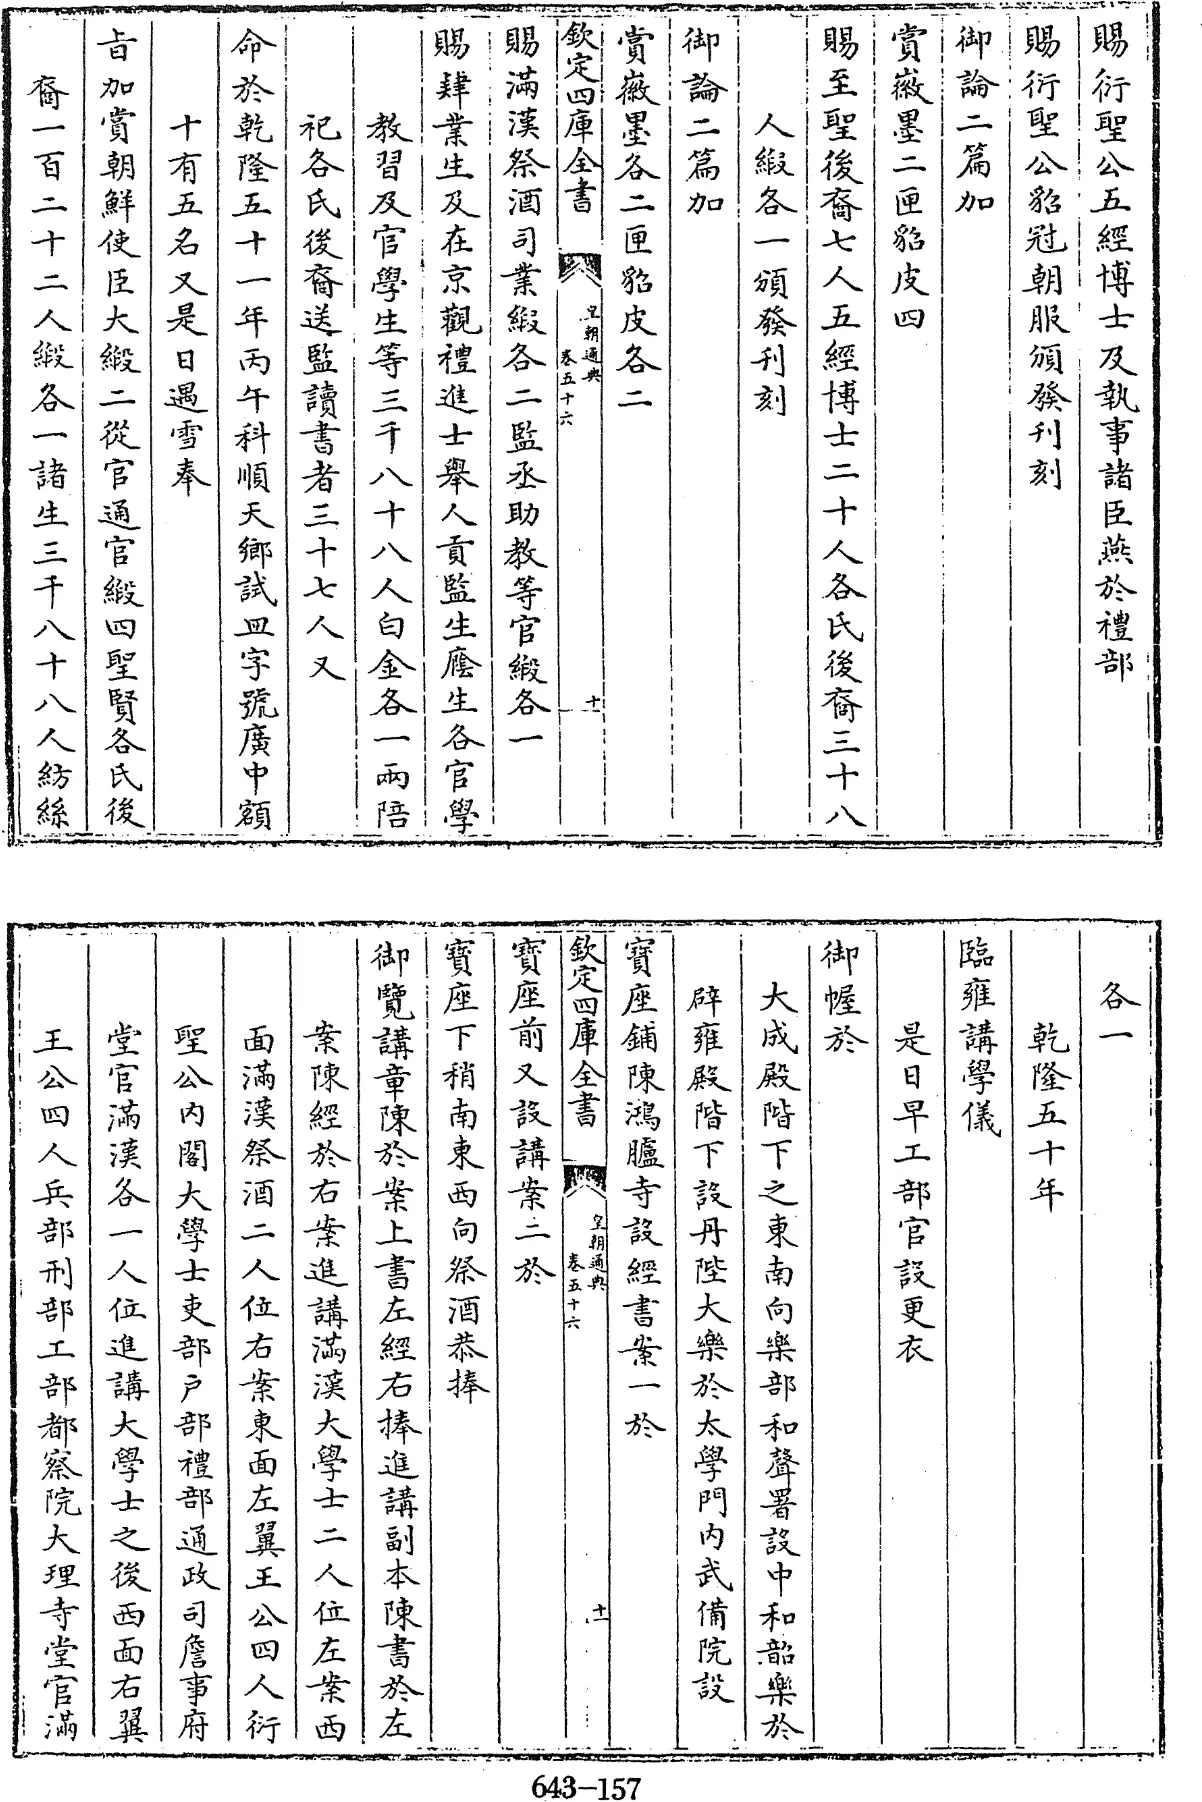 賜衍聖公五經博士及執事諸臣燕於禮部
賜衍聖公貂冠朝服頒發刊刻
御論二篇加
賞徽墨二匣貂皮四
賜至聖後裔七人五經博士二十人各氏後裔三十八
人緞各一頒發刊刻
御論二篇加
賞徽墨各二匣貂皮各二
欽定四庫全書
皇朝通典
卷五十六
十
賜滿漢祭酒司業緞各二監丞助教等官緞各一
賜肄業生及在京觀禮進士舉人貢監生廕生各官學
教習及官學生等三千八十八人白金各一兩陪
祀各氏後裔送監讀書者三十七人又
命於乾隆五十一年丙午科順天鄉試皿字號廣中額
十有五名又是日遇雪奉
旨加賞朝鮮使臣大緞二從官通官緞四聖賢各氏後
裔一百二十二人緞各一諸生三千八十八人紡絲
各一
乾隆五十年
臨雍講學儀
是日早工部官設更衣
御幄於
大成殿階下之東南向樂部和聲署設中和韶樂於
辟雍殿階下設丹陛大樂於太學門內武備院設
寶座鋪陳鴻臚寺設經書案一於
欽定四庫全書
皇朝通典
卷五十六
十一
寶座前又設講案二於
寶座下稍南東西向祭酒恭捧
御覽講章陳於案上書左經右捧進講副本陳書於左
案陳經於右案進講滿漢大學士二人位左案西
面滿漢祭酒二人位右案東面左翼王公四人衍
聖公內閣大學士吏部户部禮部通政司詹事府
堂官滿漢各一人位進講大學士之後西面右翼
王公四人兵部刑部工部都察院大理寺堂官滿
643-157